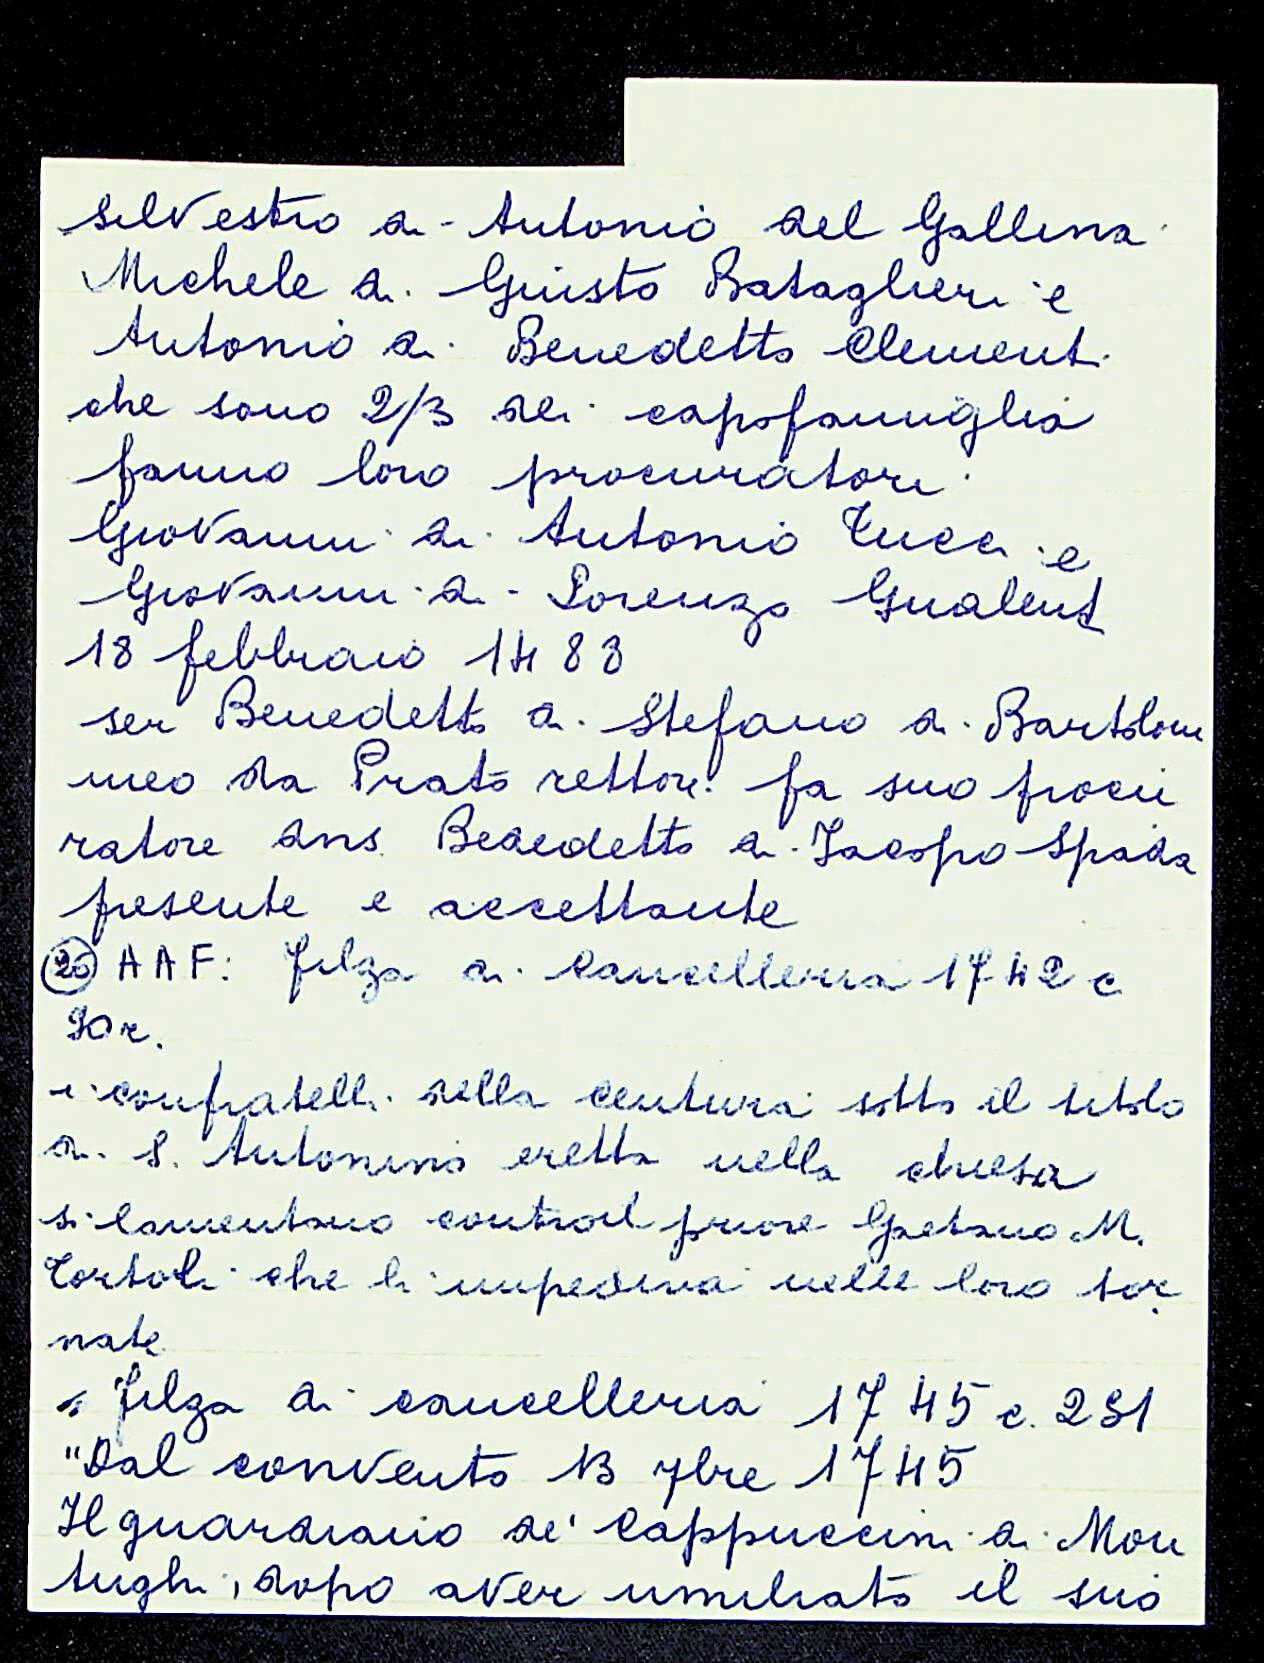 Silvestro di Antonio del Gallina
Michele di Giusto Bataglieri e
Antonio di Benedetto Clementi
che sono 2/3 dei capofamiglia
fanno loro procuratori
Giovanni di Antonio Tucci e
Giovanni di Lorenzo Gualenti
18 febbraio 1483
ser Benedetto di Stefano di Bartolom
meo da Prato rettore fa suo procu
ratore dns Benedetto di Jacopo Spada
presente e accettante
(20) AAF: filza di cancelleria 1742 c
90r.
i confratelli della centura sotto il titolo
di S. Antonino eretta nella chiesa
si lamentano contro il priore Gaetano M.
Tortoli che li impediva nelle loro tor
nate
" filza di cancelleria 1745 c. 291
"Dal convento 13 7bre 1745
Il guardiano de' Cappuccini di Mon
tughi, dopo aver umiliato il suo